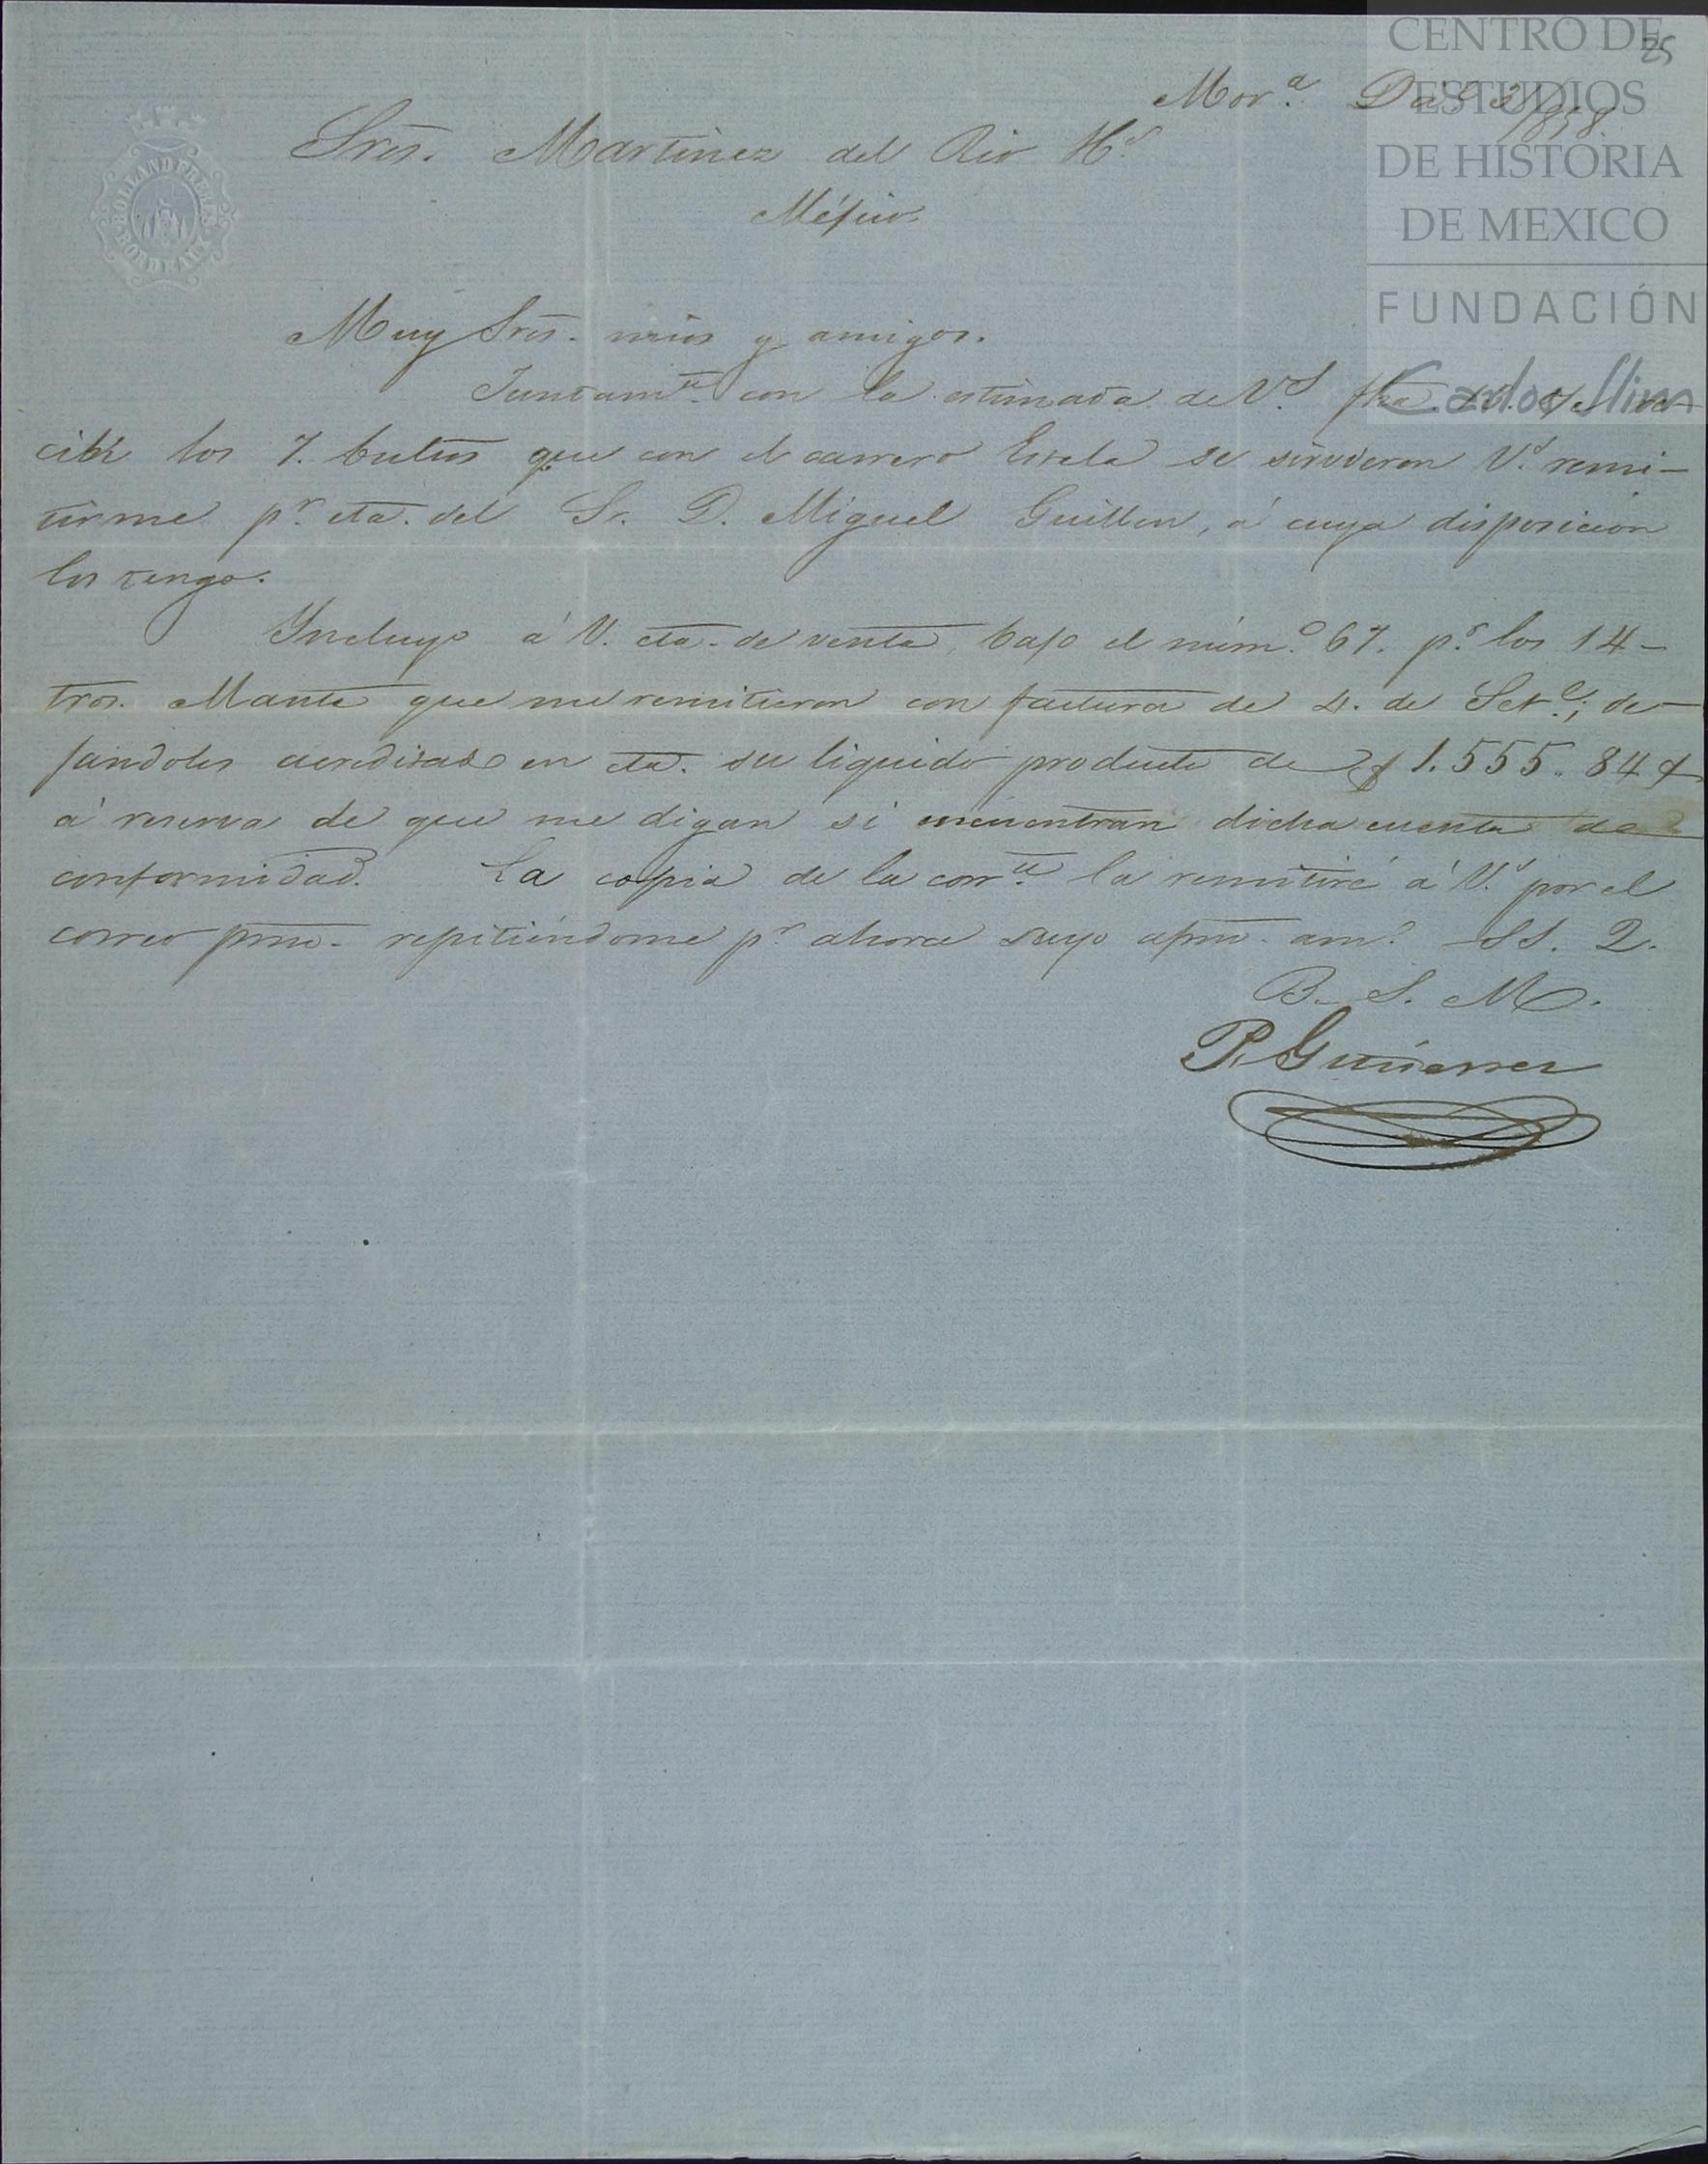 CENTRO DE
ESTUDIOS
DE HISTORIA
DE MEXICO
FUNDACIÓN
Carlos Slim
25
Mor.a
1858.
Sres. Martinez del Rio H.s
Méjico.
Muy Sres. mios y amigos.
Juntam.te con la estimada de V.s fha
cibi los 7. bultos que con el carrero se sirvieron V.s remi-
tirme p.r cta. del Sr. D. Miguel Guillen, á cuya disposicion
los tengo.
Incluyo á V. cta. de venta, bajo el núm.o 67. p.r los 14-
tros. Manta que me remitieron con factura de 4. de Set.e; de-
jandoles acreditado en cta. su liquido producto de $1.555.84
á reserva de que me digan si encuentran dicha cuenta de
conformidad. La copia de la corr.te la remitiré á V.s por el
correo prmo. repitiéndome p.r ahora suyo afmo. am.o SS. Q.
B. S. M.
P. Gutierrez